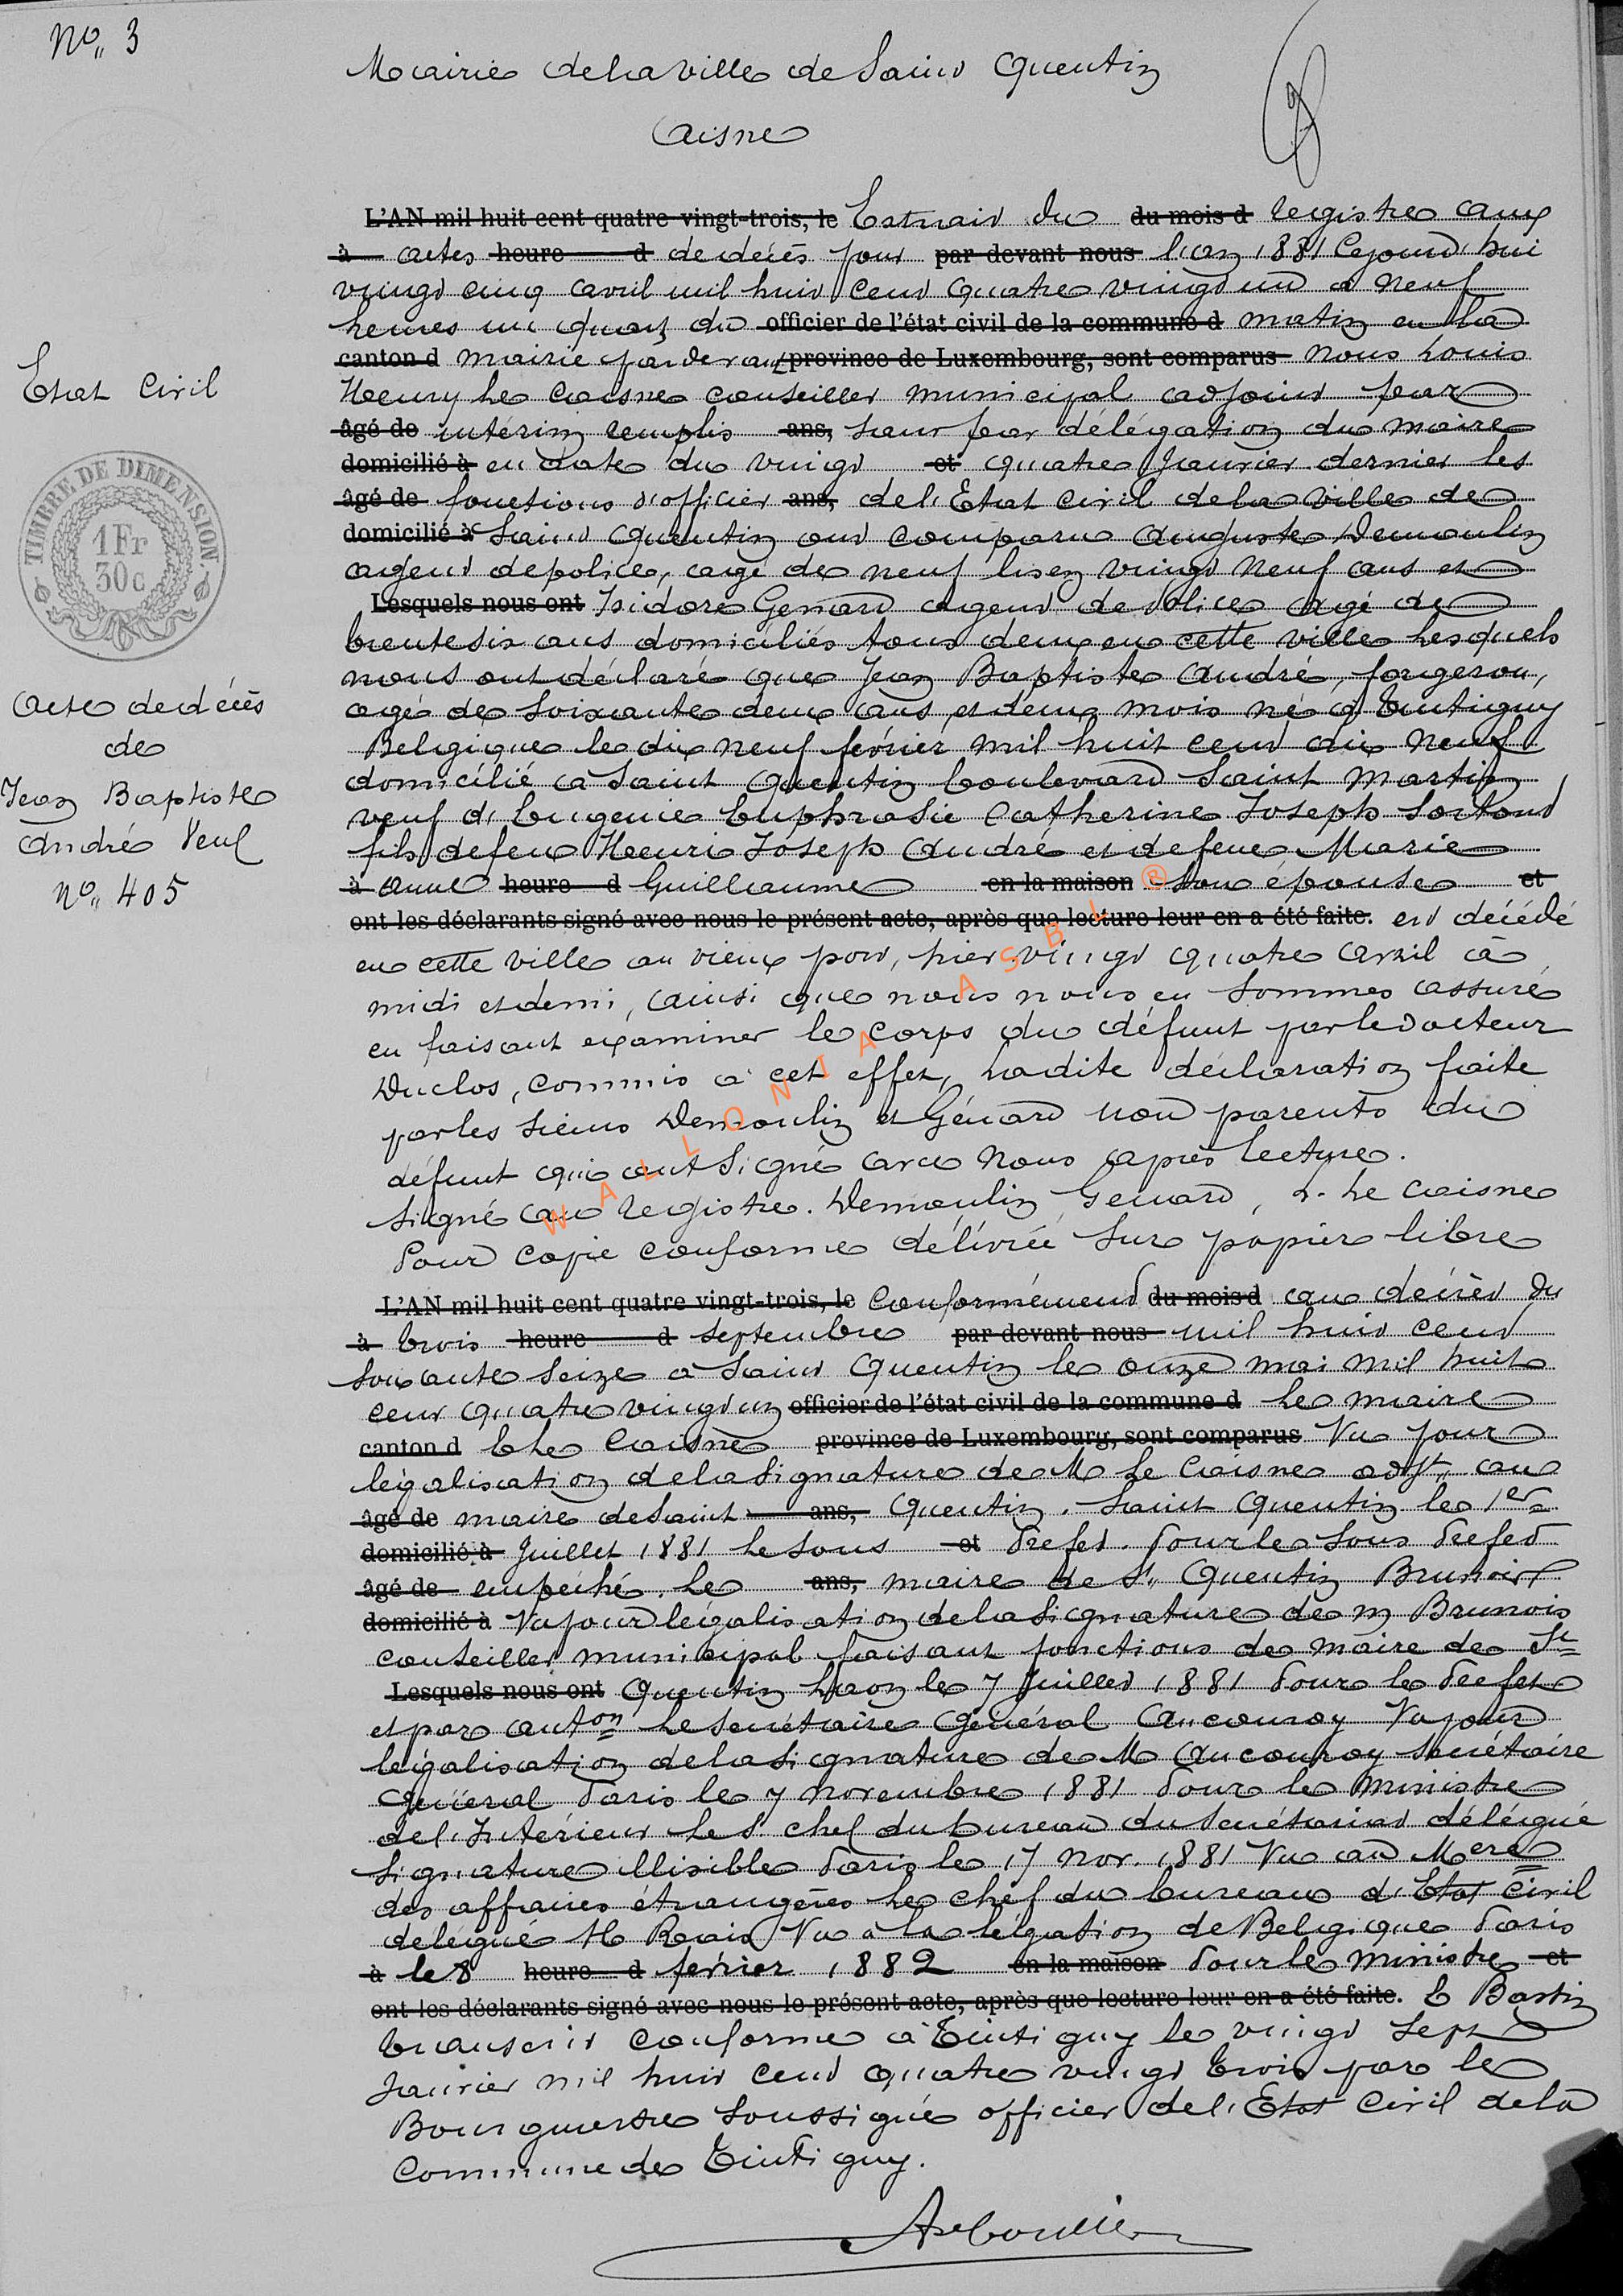 No. 3
Mairie de la ville de Saint Quentin
Aisne
L'AN mil huit cent quatre-vingt-trois, le Extrait du du mois d registre aux
à actes heure d de décès pour par devant nous l'an 1881 Cejourd'hui
vingt cinq avril mil huit cent quatre vingt un à neuf
heures un quart du officier de l'état civil de la commune d matin en la
canton d mairie par devant province de Luxembourg, sont comparus nous Louis
Henry Le Caisne conseiller municipal adjoint par
âgé de intérim remplis ans, sant par délégation du maire
domicilié à en date du vingt et quatre Janvier dernier les
âgé de fonctions d'officier ans, de l'Etat civil de la ville de
domicilié à Saint Quentin ont comparu Auguste Demoulin
agent de police, agé de neuf lisez vingt neuf ans et
Lesquels nous ont Isidore Genard agent de police agé de
trente six ans domiciliés tous deux en cette ville Lesquels
nous ont déclaré que Jean Baptiste André, forgeron,
agé de soixante deux ans et deux mois né à Tintigny
Belgique le dix neuf février mil huit cent dix neuf
domicilié à Saint Quentin boulevard Saint Martin,
veuf d'Eugenie Euphrasie Catherine Joseph
fils de feu Henri Joseph André et de feue Marie
à anne heure d Guillaume en la maison son épouse et
ont les déclarants signé avec nous le présent acte, après que lecture leur en a été faite. est décédé
en cette ville au vieux port, hier vingt quatre avril à
midi et demi, ainsi que nous nous en sommes assuré
en faisant examiner le corps du défunt par le docteur
Duclos, commis à cet effet, Ladite déclaration faite
par les sieurs Demoulin et Génard non parents du
défunt qui ont signé avec nous après lecture.
Signé au registre. Demoulin Genard, L. Le Caisne
Pour copie conforme délivrée sur papier libre
L'AN mil huit cent quatre vingt-trois, le Conformément du mois d au décret du
à trois heure d septembre par devant nous mil huit cent
soixante seize à Saint Quentin le onze mai mil huit
cent quatre vingt un officier de l'état civil de la commune d Le maire
canton d L Le Caisne province de Luxembourg, sont comparus Vu pour
légalisation de la signature de M Le Caisne adjt au
âgé de maire de Saint ans, Quentin. Saint Quentin le 1er
domicilié à Juillet 1881 Le Sous et Préfet. Pour le Sous Préfet
âgé de empêché Le ans, maire de St Quentin Brunois
domicilié à Vu pour légalisation de la signature de m Brunois
conseiller municipal faisant fonctions de maire de St
Lesquels nous ont Quentin Laon le 7 Juillet 1881 Pour le Préfet
et par auton Le Secrétaire Général Aucouroy Vu pour
légalisation de la signature de M Aucouroy secrétaire
Général Paris le 7 Novembre 1881 Pour le Ministre
de l'Intérieur Le S. chef du bureau du Secrétariat délégué
Signature illisible Paris le 17 Nov. 1881 Vu au Mere
des affaires étrangères Le chef du bureau d'Etat Civil
delégué Vu à la légation de Belgique Paris
à le 8 heure d février 1882 en la maison Pour le Ministre et
ont les déclarants signé avec nous le présent acte, après que lecture leur en a été faite. E Bastin
Transcrit conforme à Tintigny le vingt sept
Janvier mil huit cent quatre vingt trois par le
Bourgmestre soussigné officier de l'Etat Civil de la
Commune de Tintigny.
Etat Civil
TIMBRE DE DIMENSION
1 Fr
30 c
Acte de décès
de
Jean Baptiste
André Veuf
No. 405
WALLONIA ASBL ®